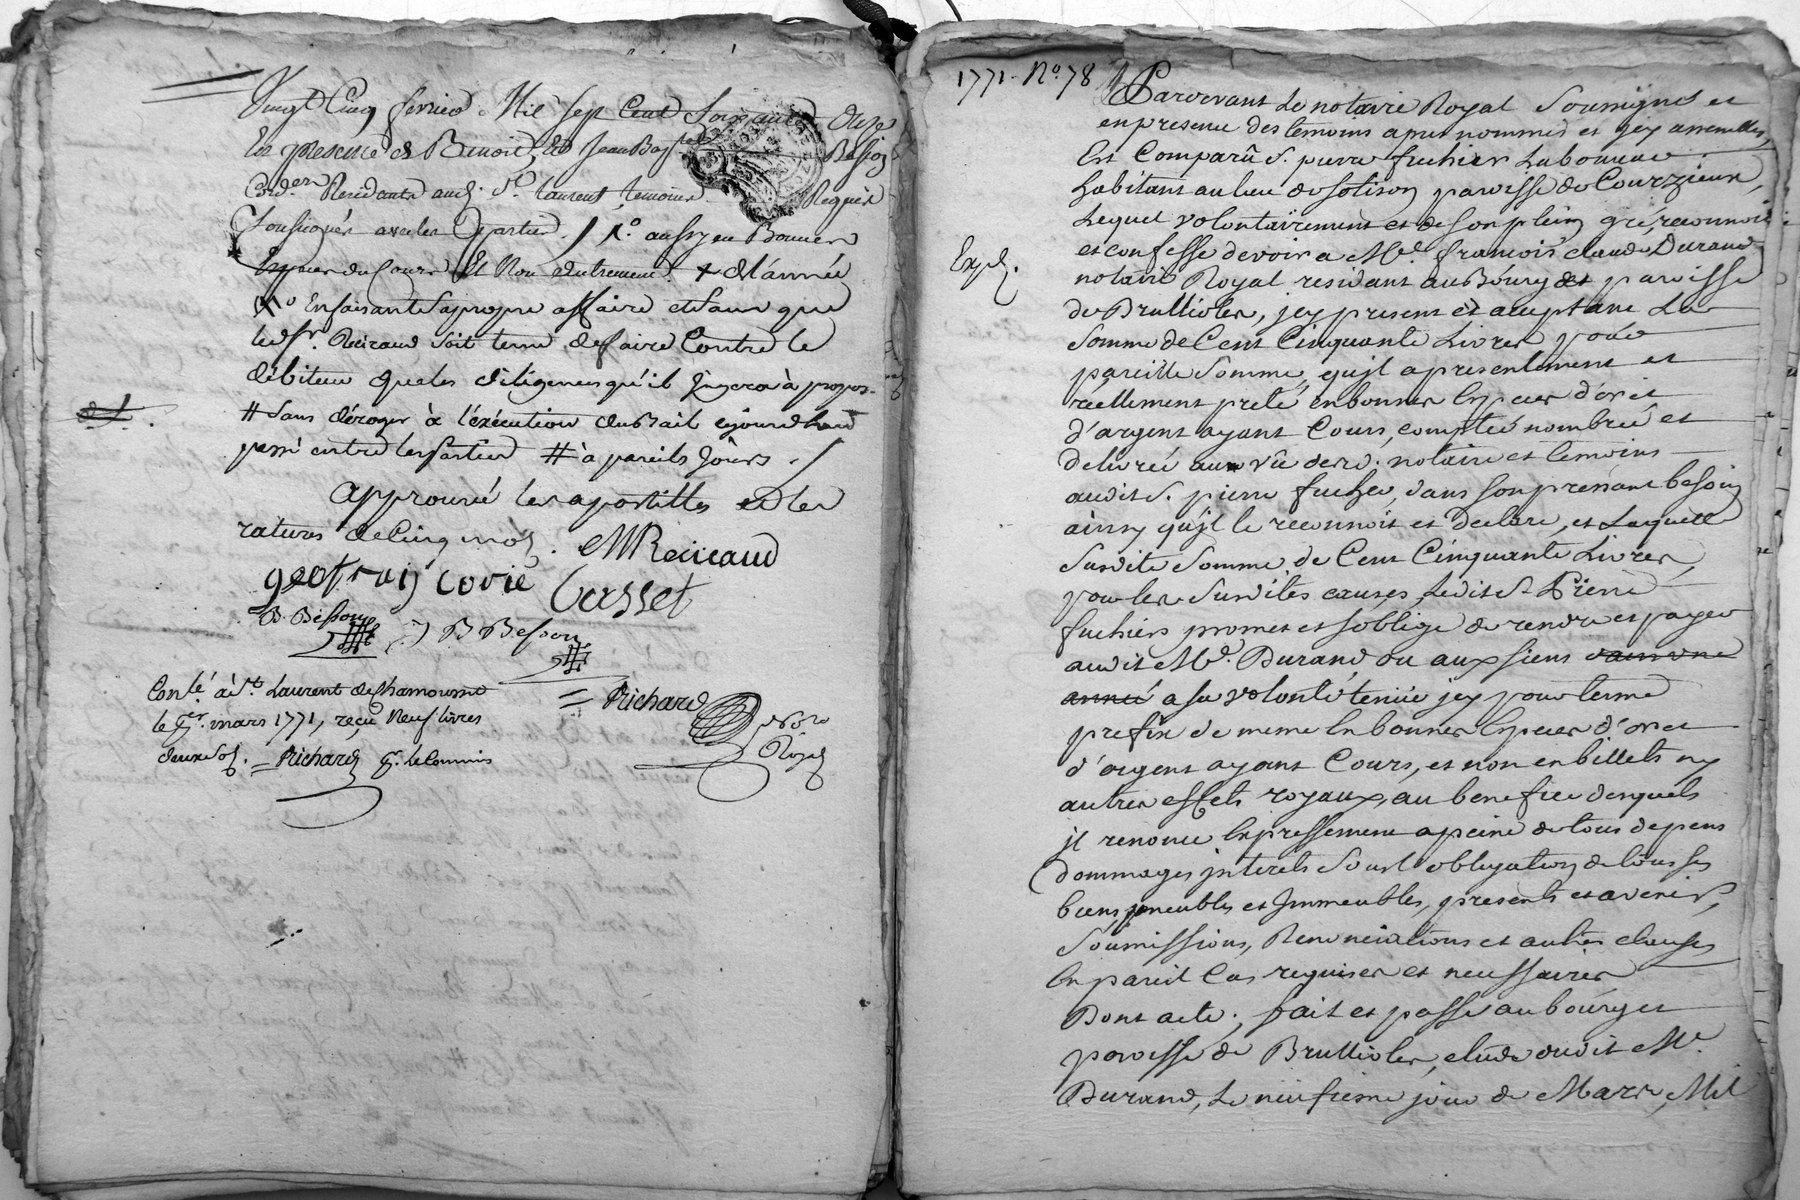 Vingt Cinq fevrier Mil Sept Cent Soixante Onze
En presence de Benoit et Jean Bap.te Besson
Cord.ers Residants aud. S.t Laurent, temoins Requis
Soussignés avec les Parties / 1.o aussy en Bonnes
Especes du Cours Et Non Autrement. + de l'année
X.o En faisant sa propre affaire et sans que
led. s.r Reiraud Soit tenu, de faire Contre le
débiteur que les diligences qu'il Jugera à propos.
# Sans déroger à l'éxécution du Bail cejourd'huy
passé entre les parties # à pareils Jours
approuvé les apostilles et les
ratures de Cinq mots. MReiraud
geofray corie Casset
B. Besson B Besson
= Richard
no.re Royal
Con.lé à S.t Laurent de Chamousset
le mars 1771, reçu Neuf livres
deux sols. = Richard
1771 - N.o 78
Pardevant Le notaire Royal Soussigné et
en presence des temoins apres nommés et jcy assemblés,
Est Comparû S. pierre fuchier Laboureur
habitant au lieu de Solison paroisse de Courzieux,
Lequel volontairement et de son plein gré, reconnoit
et confesse devoir a M.e francois claude Durand
Exp.d.
notaire Royal residant au Bourg et paroisse
de Brullioles, jcy present et acceptant La
Somme de Cent Cinquante Livres pour
pareille Somme, qu'jl a presentement et
réellement preté en bonnes Especes d'or et
d'argent ayant Cours, comptée nombrée et
delivrée au vû de nd. notaire et temoins
audit S. pierre fuchier, dans son pressant besoin
ainsy qu'jl le reconnoit et declare, et Laquelle
Susdite Somme de Cent Cinquante Livres,
pour les Susdites causes, Ledit S. Pierre
fuchier promet et s'oblige de rendre et payer
audit M.e Durand ou aux siens dans une
année a sa volonté tenüe jcy pour terme
prefix de meme En bonnes Especes d'or et
d'argent ayant Cours, et non en billets ny
autres effets royaux, au benefice desquels
jl renonce Expressement a peine de tous depens
dommages jnterets Sous l'obligation de tous ses
biens, meubles et Jmmeubles, presents et avenir,
Soumissions, Renonciations et autres clauses
En pareil Cas requises et necessaires
Dont acte; fait et passé au bourg et
paroisse de Brullioles, etude dudit M.e
Durand, Le neufieme jour de Mars, Mil